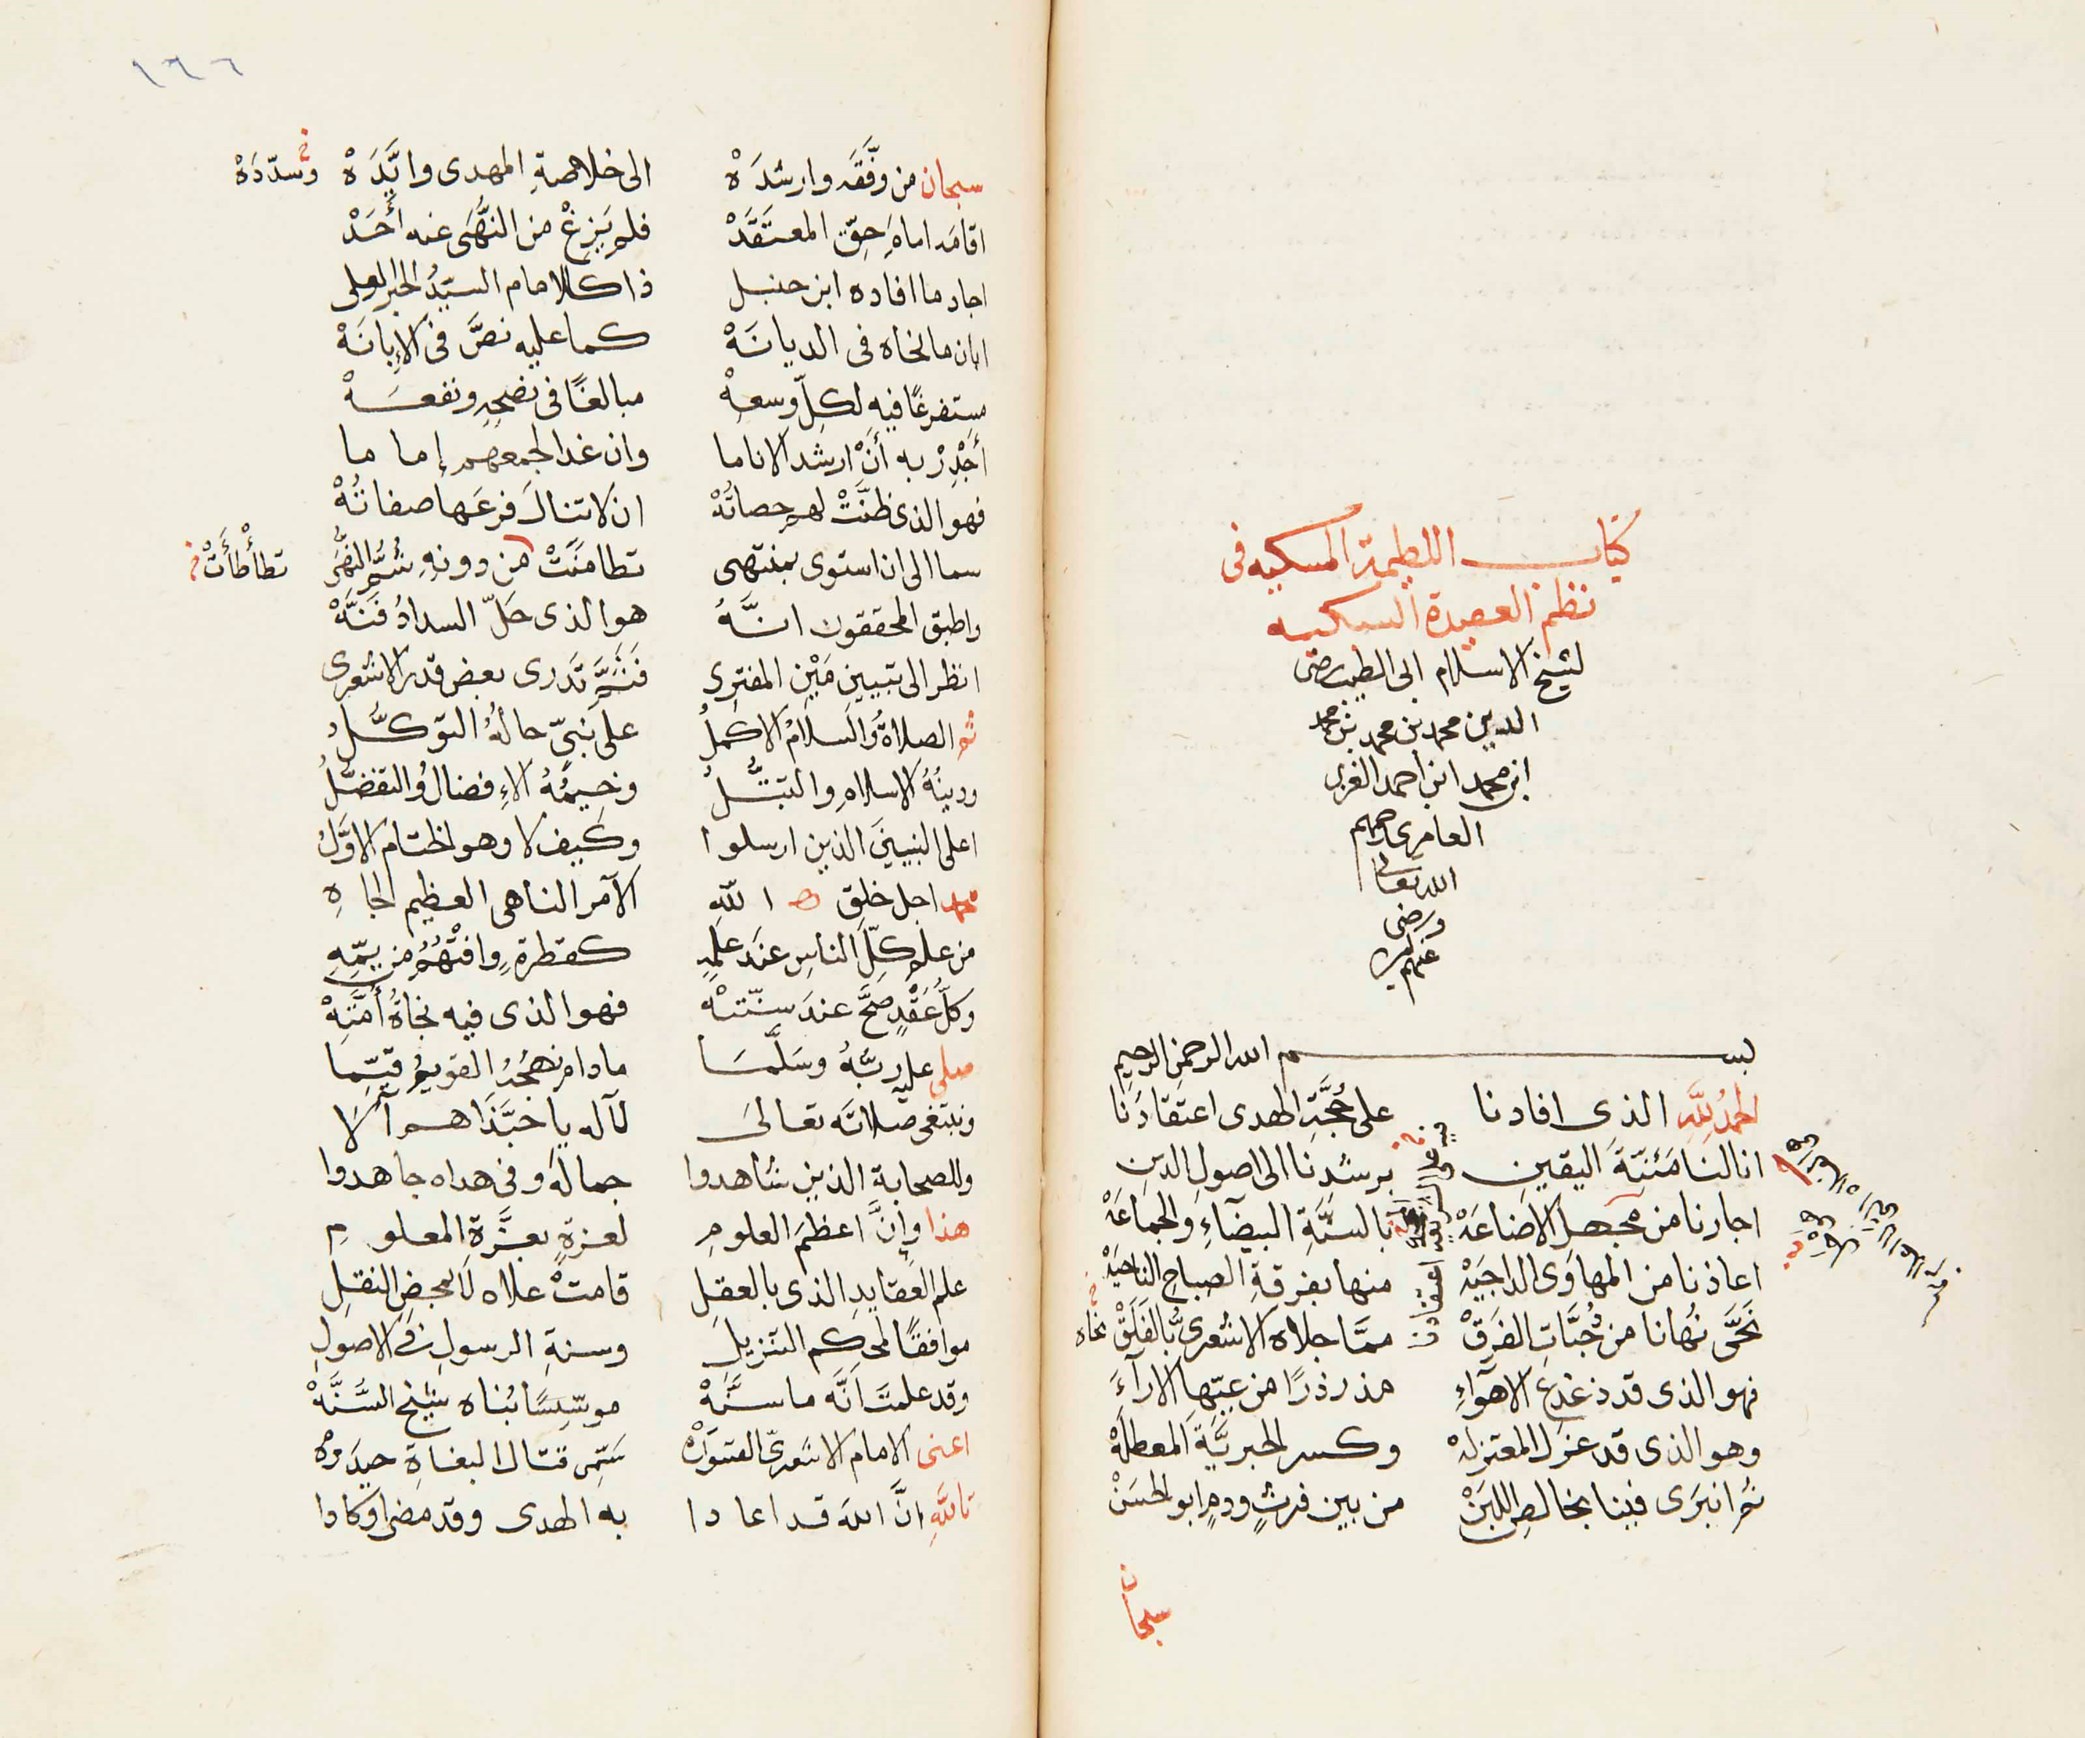 كتاب اللطيمة المسكيه فى
نظم العقيدة السبكيه
لشيخ الاسلام ابى الطيب رضى
الدين محمد بن محمد بن محمد
ابن محمد ابن احمد الغزى
العامرى رحمهم
الله تعالى
ورضى
عنهم
بسم الله الرحمن الرحيم
الحمدُ لِلَّهِ الذى افادنا على مُحَجَّةِ الهدى اعتقادَنا
انالنا مَئنّةَ اليقينِ برشدنا الى اصولِ الدينِ
اجارنا من مجهل الاضاعَهْ بالسنَّةِ البيضآءِ والجماعَهْ
اعاذنا من المهاوَى الداجيَهْ منها بفرقةِ الصباح الناجيَهْ
نَحَّى نُهانا من جُبَّاتِ الفرَقْ ممَّا جلاه الاشعرىُّ بالفَلَقْ نحاه
فهو الذى قد ذعذع الاهوآءِ مذ رذرًا من عيّها الارآءَ
وهو الذى قد عزل المعتزلهْ وكسر الجبريَّةَ المعطلهْ
ثم انبرَى فينا بخالصِ اللبَنْ من بين فرثٍ ودمٍ ابو الحسَنْ
سبحان
١٦٦
سبحان من وفَّقَه وارشدَهْ الى خلاصةِ المهدى وايَّدَهْ وسدّدَهْ خ
اقامَه امامَ حقّ المعتقَدْ فلم يَزِغْ من النُّهَى عنه أَحَدْ
اجاد ما افاده ابن حنبل ذاك الامام السيّدُ الحبر العلى
ابان ما نحاه فى الديانَهْ كما عليه نصَّ فى الاِبانَهْ
مستفرغًا فيه لكلّ وسعهْ مبالغًا فى نصحِه ونفعَهْ
أَجْدِرْ به أَنْ ارشد الاناما وان غدا لجمعهم إماما
فهو الذى ظنَّتْ لهم حصاتُهْ ان لا تنال فرعَها صفاتُهْ
سما الى ان استوى بمنتهى تطامنَتْ من دونهِ شُمُّ النُّهَى تطأطأَتْ خ
واطبق المحققون انَّهُ هو الذى حَلّ السدادُ فَنَّهْ
انظر الى تبيينِ مَيْنِ المفترِى فَثَمَّ تَدرى بعض قدر الاشعرى
ثم الصلاةُ والسلامُ الاكملُ على نبىّ حالهُ التوكُّلُ
ودينُهُ الاسلامُ والتبتُّلُ وخيمُهُ الاِفضالُ والتفضّلُ
اعلى النبيينَ الذين ارسلوا وكيف لا وهو الختام الاوَّلُ
محمد اجل خلق الله الآمر الناهى العظيم الجاهِ
من علم كلّ الناسِ عند علمِهِ كقطرةٍ وافتْهُمُ من يمّهِ
وكلُّ عَقْدٍ صحَّ عندَ سنّتهْ فهو الذى فيه نجاةُ أُمَّتِهْ
صلى عليه ربُّهُ وسَلَّمَا مادام نهجُهُ القويمُ قيّما
ونبتغى صلاته تعالىَ لآله يا حبَّذَا هم آلَا
وللصحابة الذين شاهدوا جماله وفى هداه جاهدوا
هذا وإنَّ اعظمَ العلومِ لعزةٍ بعزَّة المعلومِ
علم العقايدِ الذى بالعقلِ قامتْ علاه لا بمحضِ النقلِ
موافقًا لمحكم التنزيلِ وسنةِ الرسولِ فى الاصولِ
وقد علمتَ انَّه ما سنَّهْ موسّسًا بُناه شيخ السُّنَّهْ
اعنى الامام الاشعرىّ القسورَهْ سَمِّى قتّال البغاةِ حيدَرهْ
تاللهِ انَّ اللهَ قد اعادا به الهدى وقد مضى اوكادا